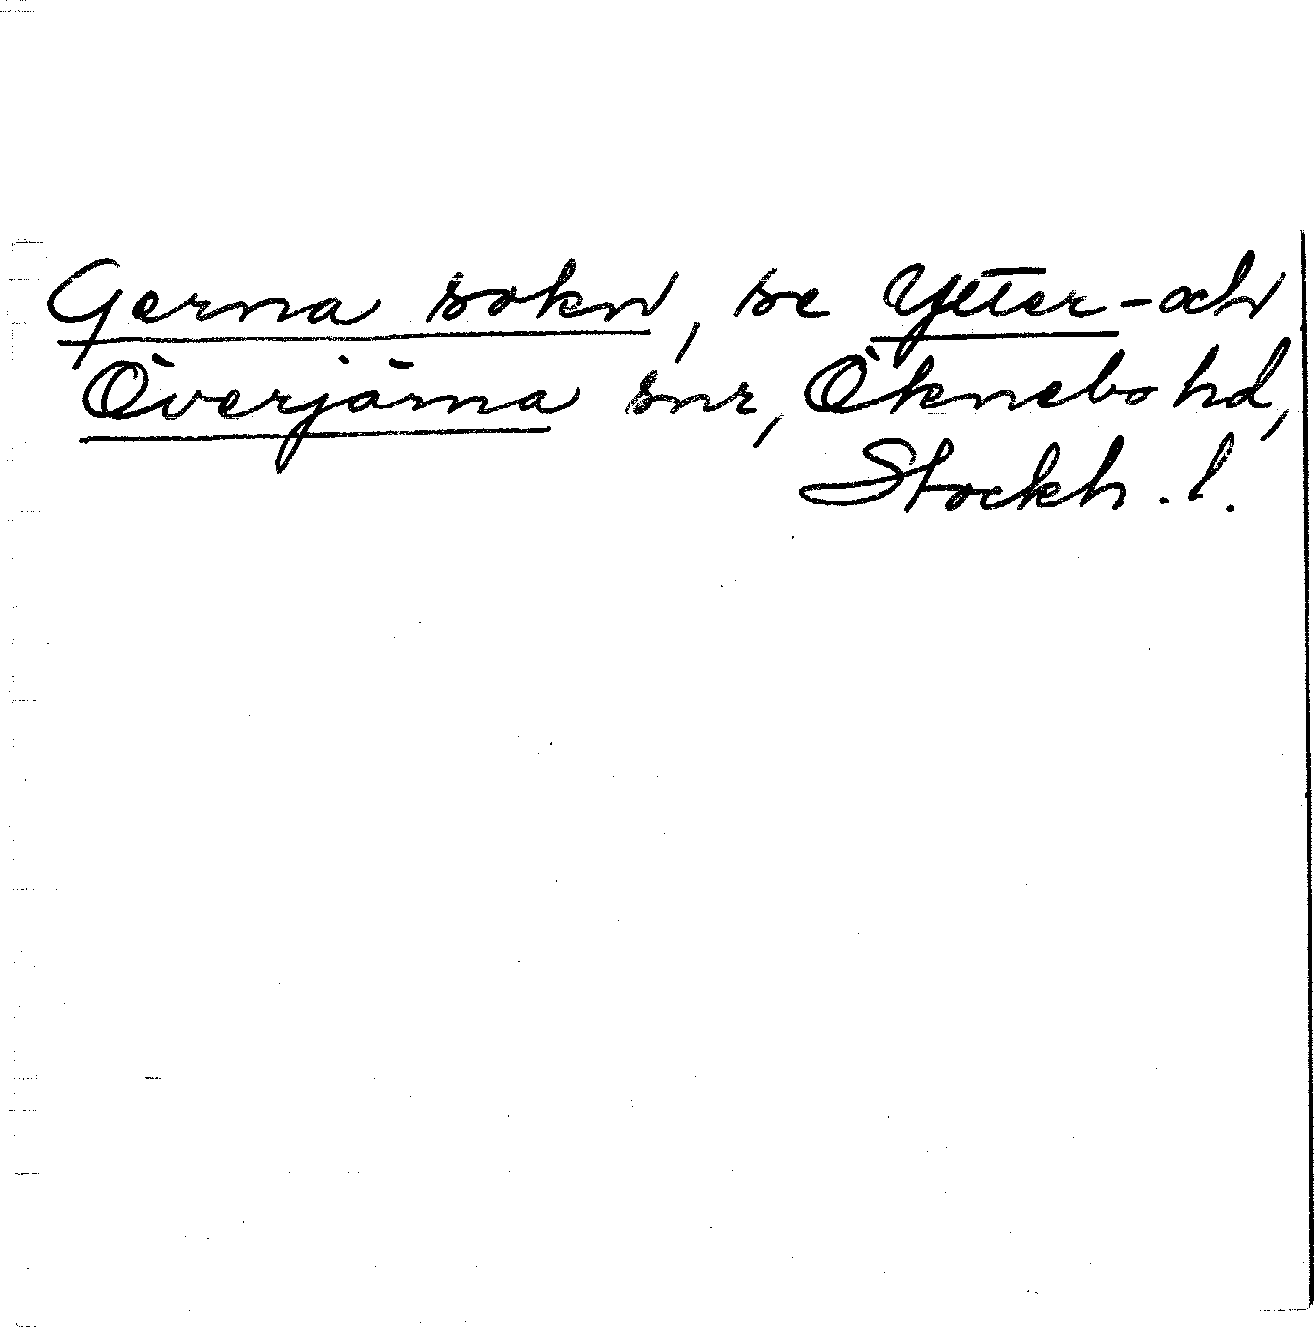 Gerna sokn, se Ytter- och
Överjärna snr, Öknebo hd,
Stockh. l.